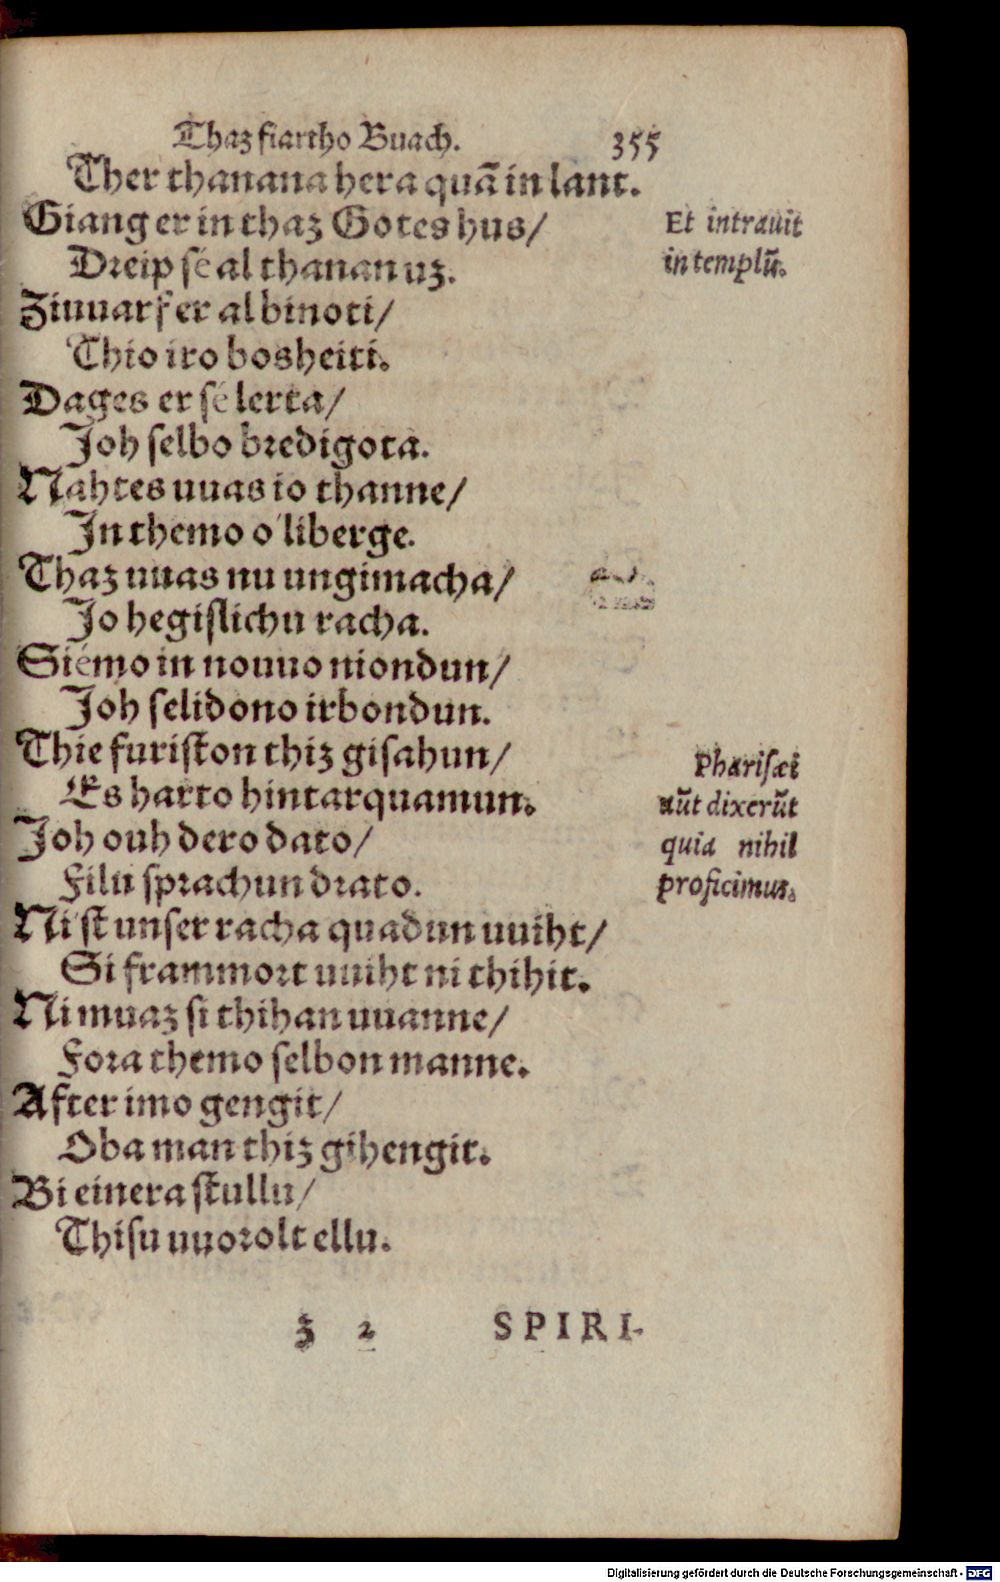 Thaz fiartho Buach. 355
Ther thanana hera quā in lant.
Giang er in thaz Gotes hus/
Et intrauit
Dreip sé al thanan uz.
in templū.
Ziuuarf er al binoti/
Thio iro bosheiti.
Dages er sé lerta/
Joh selbo bredigota.
Nahtes uuas io thanne/
In themo o'liberge.
Thaz uuas nu ungimacha/
Jo hegislichu racha.
Siémo in nouuo niondun/
Joh selidono irbondun.
Thie furiston thiz gisahun/
Pharisæi
Es harto hintarquamun.
aūt dixerūt
Joh ouh dero dato/
quia nihil
Filu sprachun drato.
proficimus.
Ni'st unser racha quadun uuiht/
Si frammort uuiht ni thihit.
Ni muaz si thihan uuanne/
Fora themo selbon manne.
After imo gengit/
Oba man thiz gihengit.
Bi einera stullu/
Thisu uuorolt ellu.
Z 2 SPIRI-
Digitalisierung gefördert durch die Deutsche Forschungsgemeinschaft - DFG